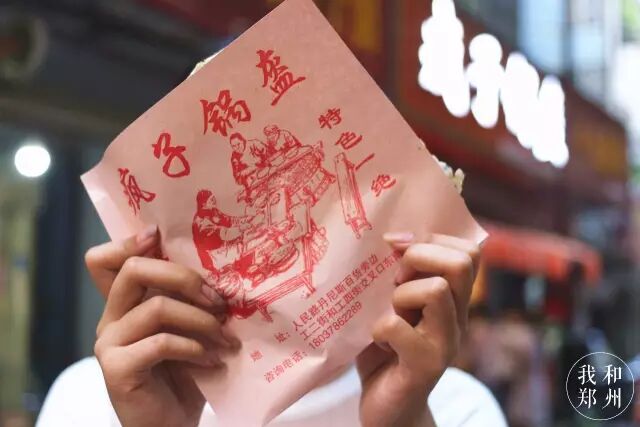 疯子锅盔
特色一绝
地 址：人民路丹尼斯百货旁边
工二街和工四街交叉口东
咨询电话：18037862289
我和
郑州